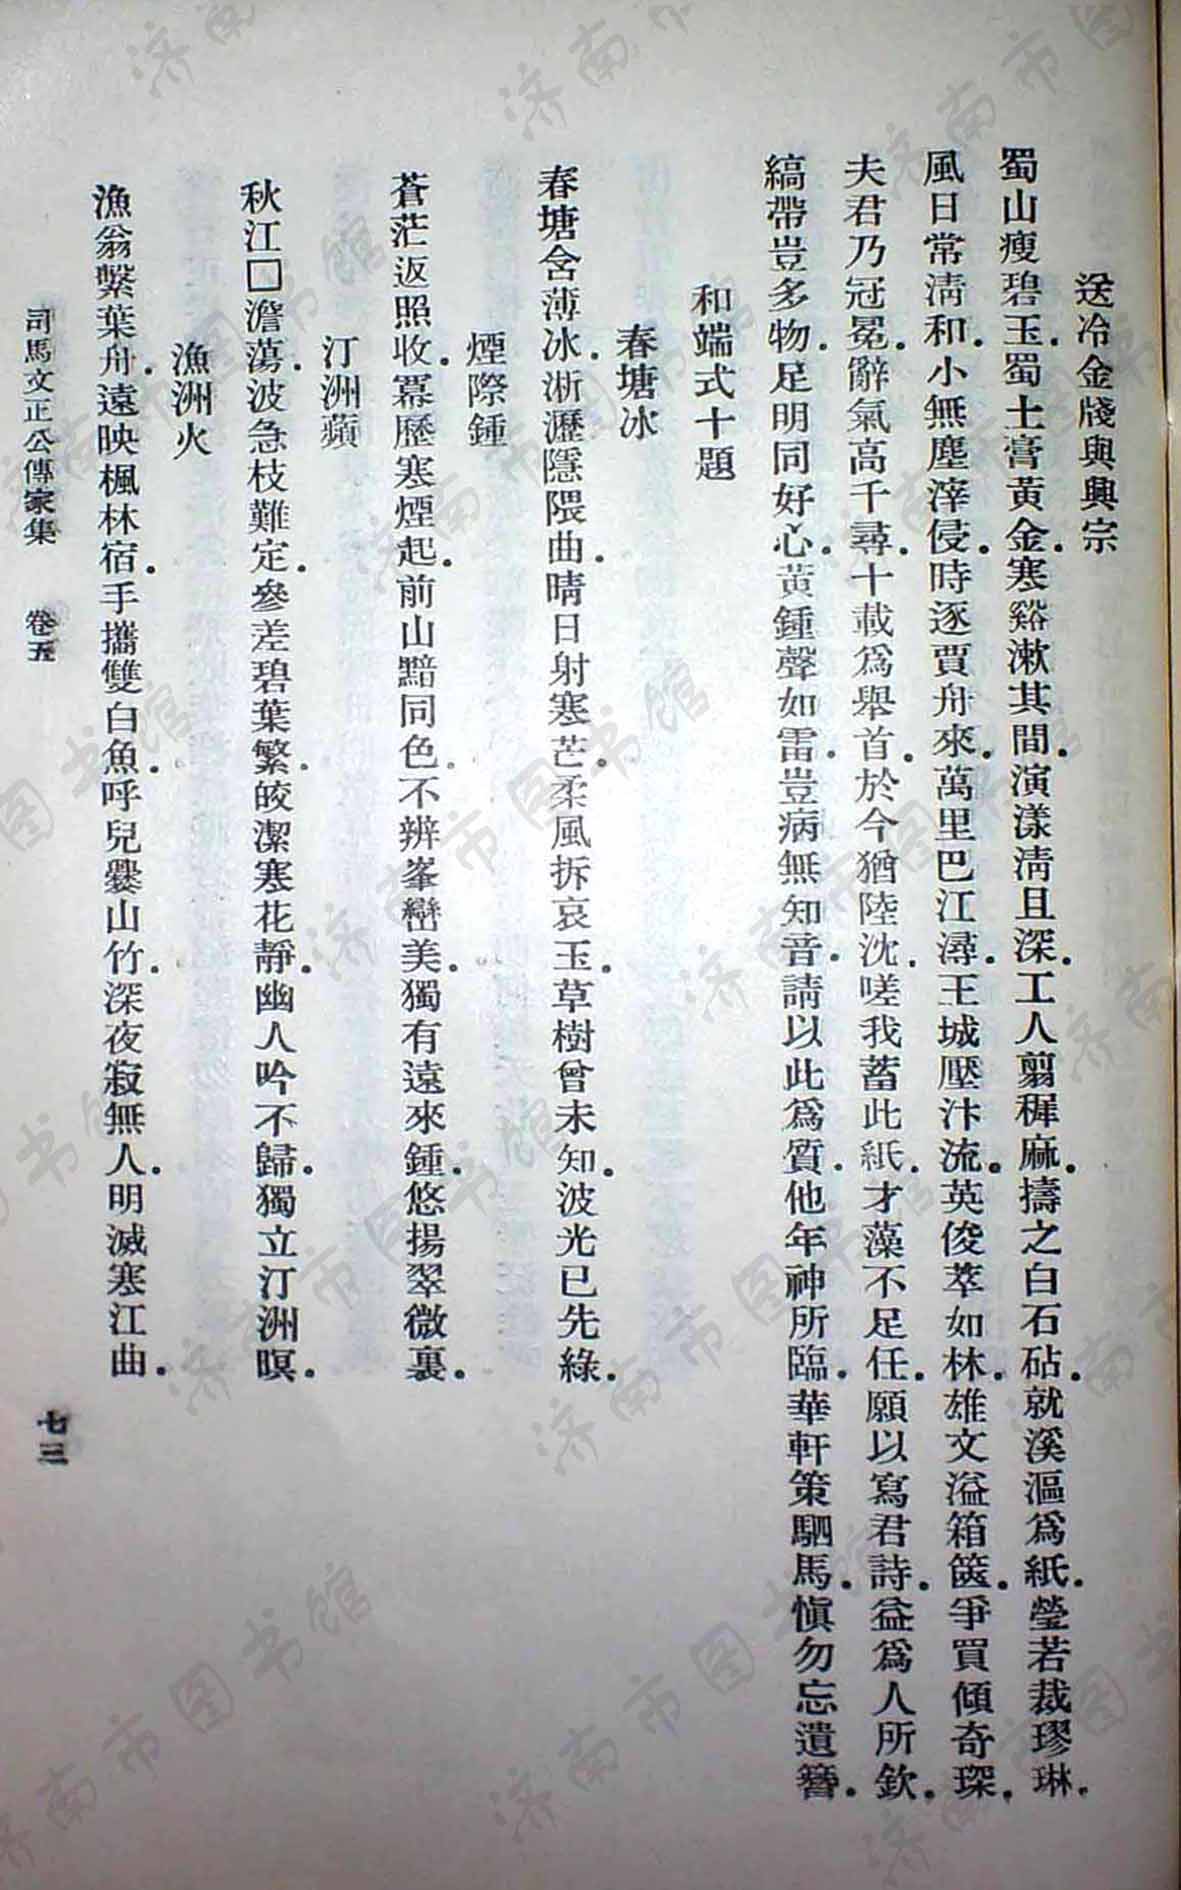 送冷金牋與興宗
蜀山瘦碧玉.蜀土膏黃金.寒谿漱其間.演漾淸且深.工人翦稺麻.擣之白石砧.就溪漚爲紙.瑩若裁璆琳.
風日常淸和.小無塵滓侵.時逐賈舟來.萬里巴江潯.王城壓汴流.英俊萃如林.雄文溢箱篋.爭買傾奇琛.
夫君乃冠冕.辭氣高千尋.十載爲舉首.於今猶陸沈.嗟我蓄此紙.才藻不足任.願以寫君詩.益爲人所欽.
縞帶豈多物.足明同好心.黃鍾聲如雷.豈病無知音.請以此爲質.他年神所臨.華軒策駟馬.愼勿忘遺簪.
和端式十題
春塘冰
春塘含薄冰.淅瀝隱隈曲.晴日射寒芒.柔風拆哀玉.草樹曾未知.波光已先綠.
煙際鍾
蒼茫返照收.冪歷寒煙起.前山黯同色.不辨峯巒美.獨有遠來鍾.悠揚翠微裏.
汀洲蘋
秋江□澹蕩.波急枝難定.參差碧葉繁.皎潔寒花靜.幽人吟不歸.獨立汀洲暝.
漁洲火
漁翁繫葉舟.遠映楓林宿.手攜雙白魚.呼兒爨山竹.深夜寂無人.明滅寒江曲.
司馬文正公傳家集 卷五
七三
济南市图书馆